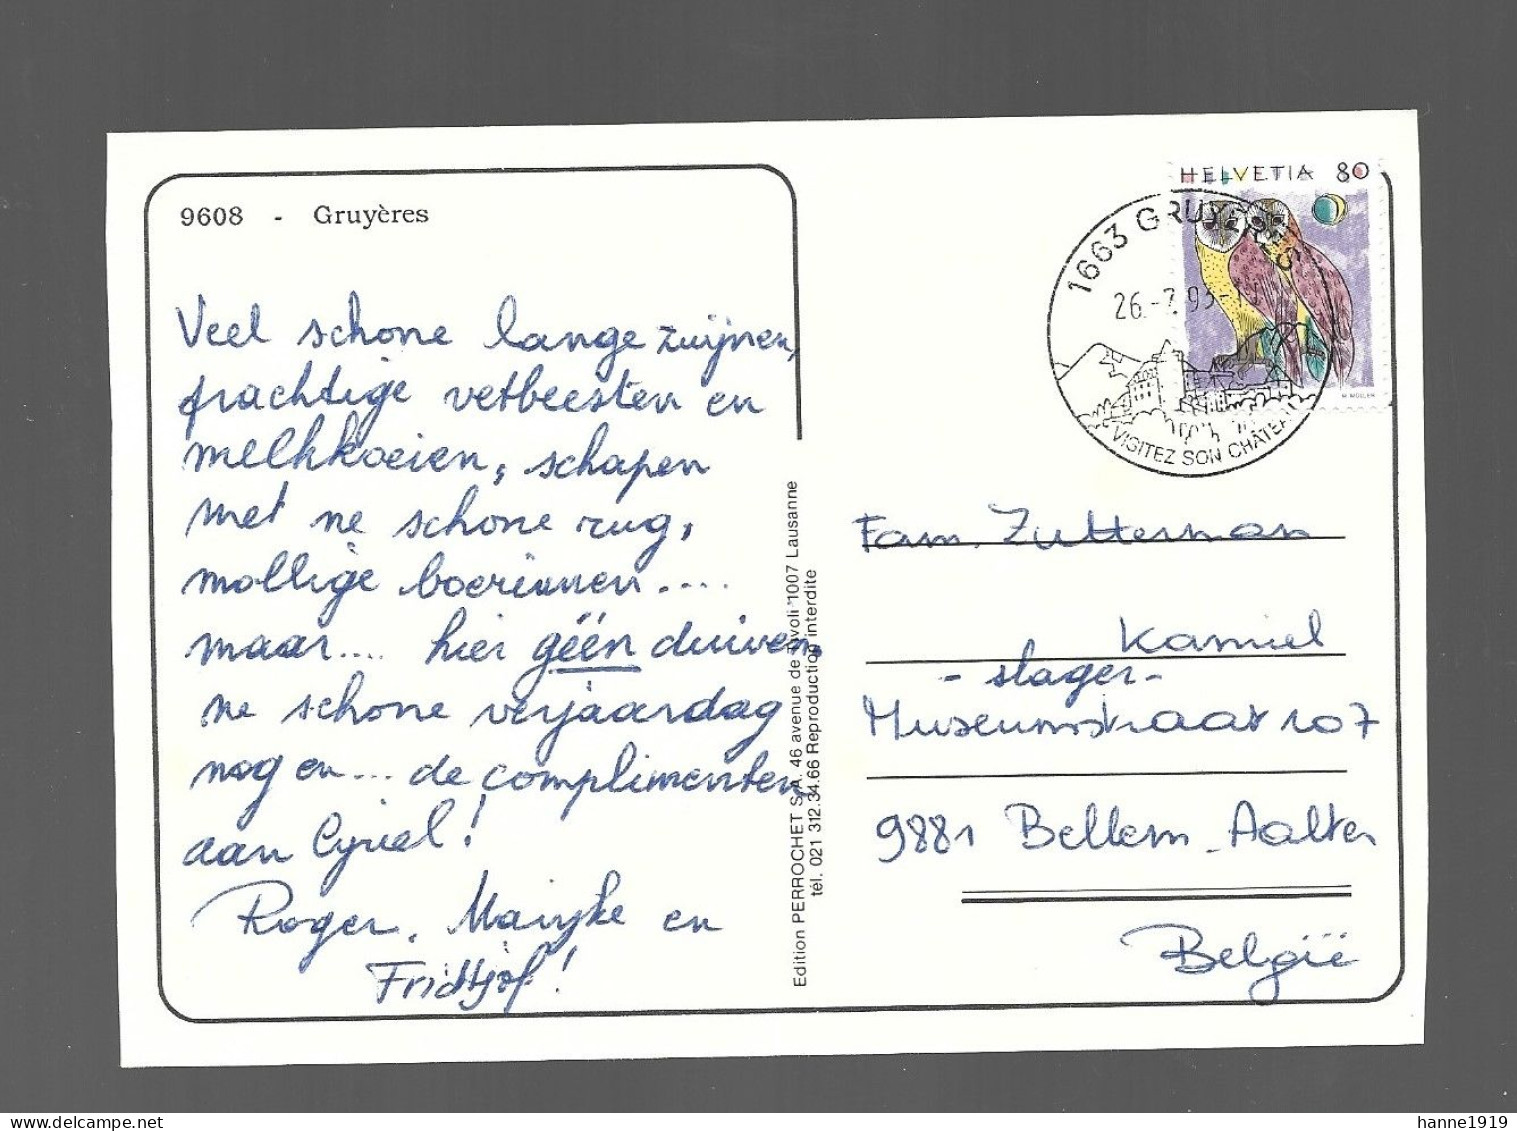 9608 - Gruyères
Veel schone lange zwijnen,
prachtige vetbeesten en
melkkoeien, schapen
met ne schone rug,
mollige boerinnen....
maar.... hier géén duiven,
ne schone verjaardag
nog en... de complimenten
aan Cyriel!
Roger, Marijke en
Fridtjof!
Edition PERROCHET S.A. 46 avenue de Tivoli 1007 Lausanne
tél. 021 312.34.66 Reproduction interdite
HELVETIA 80
M. MÜLLER
1663 GRUYÈRES
26.-7.93-
VISITEZ SON CHÂTEAU
Fam. Zutterman
Kamiel
- slager -
Museumstraat 107
9881 Bellem-Aalter
België
hanne1919